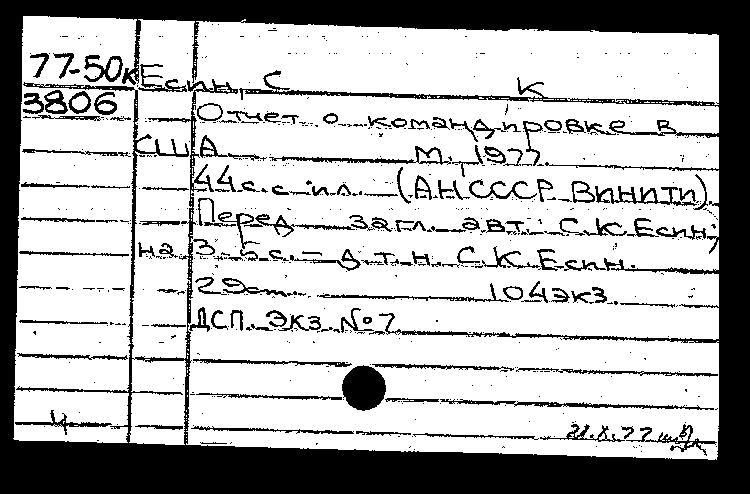 77-50к Есин, С К
3806 Отчет о командировке в
США М., 1977.
44с. с ил. (АН СССР. ВИНИТИ)
Перед загл. авт.: С.К. Есин;
на 3-5с. – д.т.н. С.К. Есин.
29см. 104экз.
ДСП. Экз. №7
ч 21.X.77